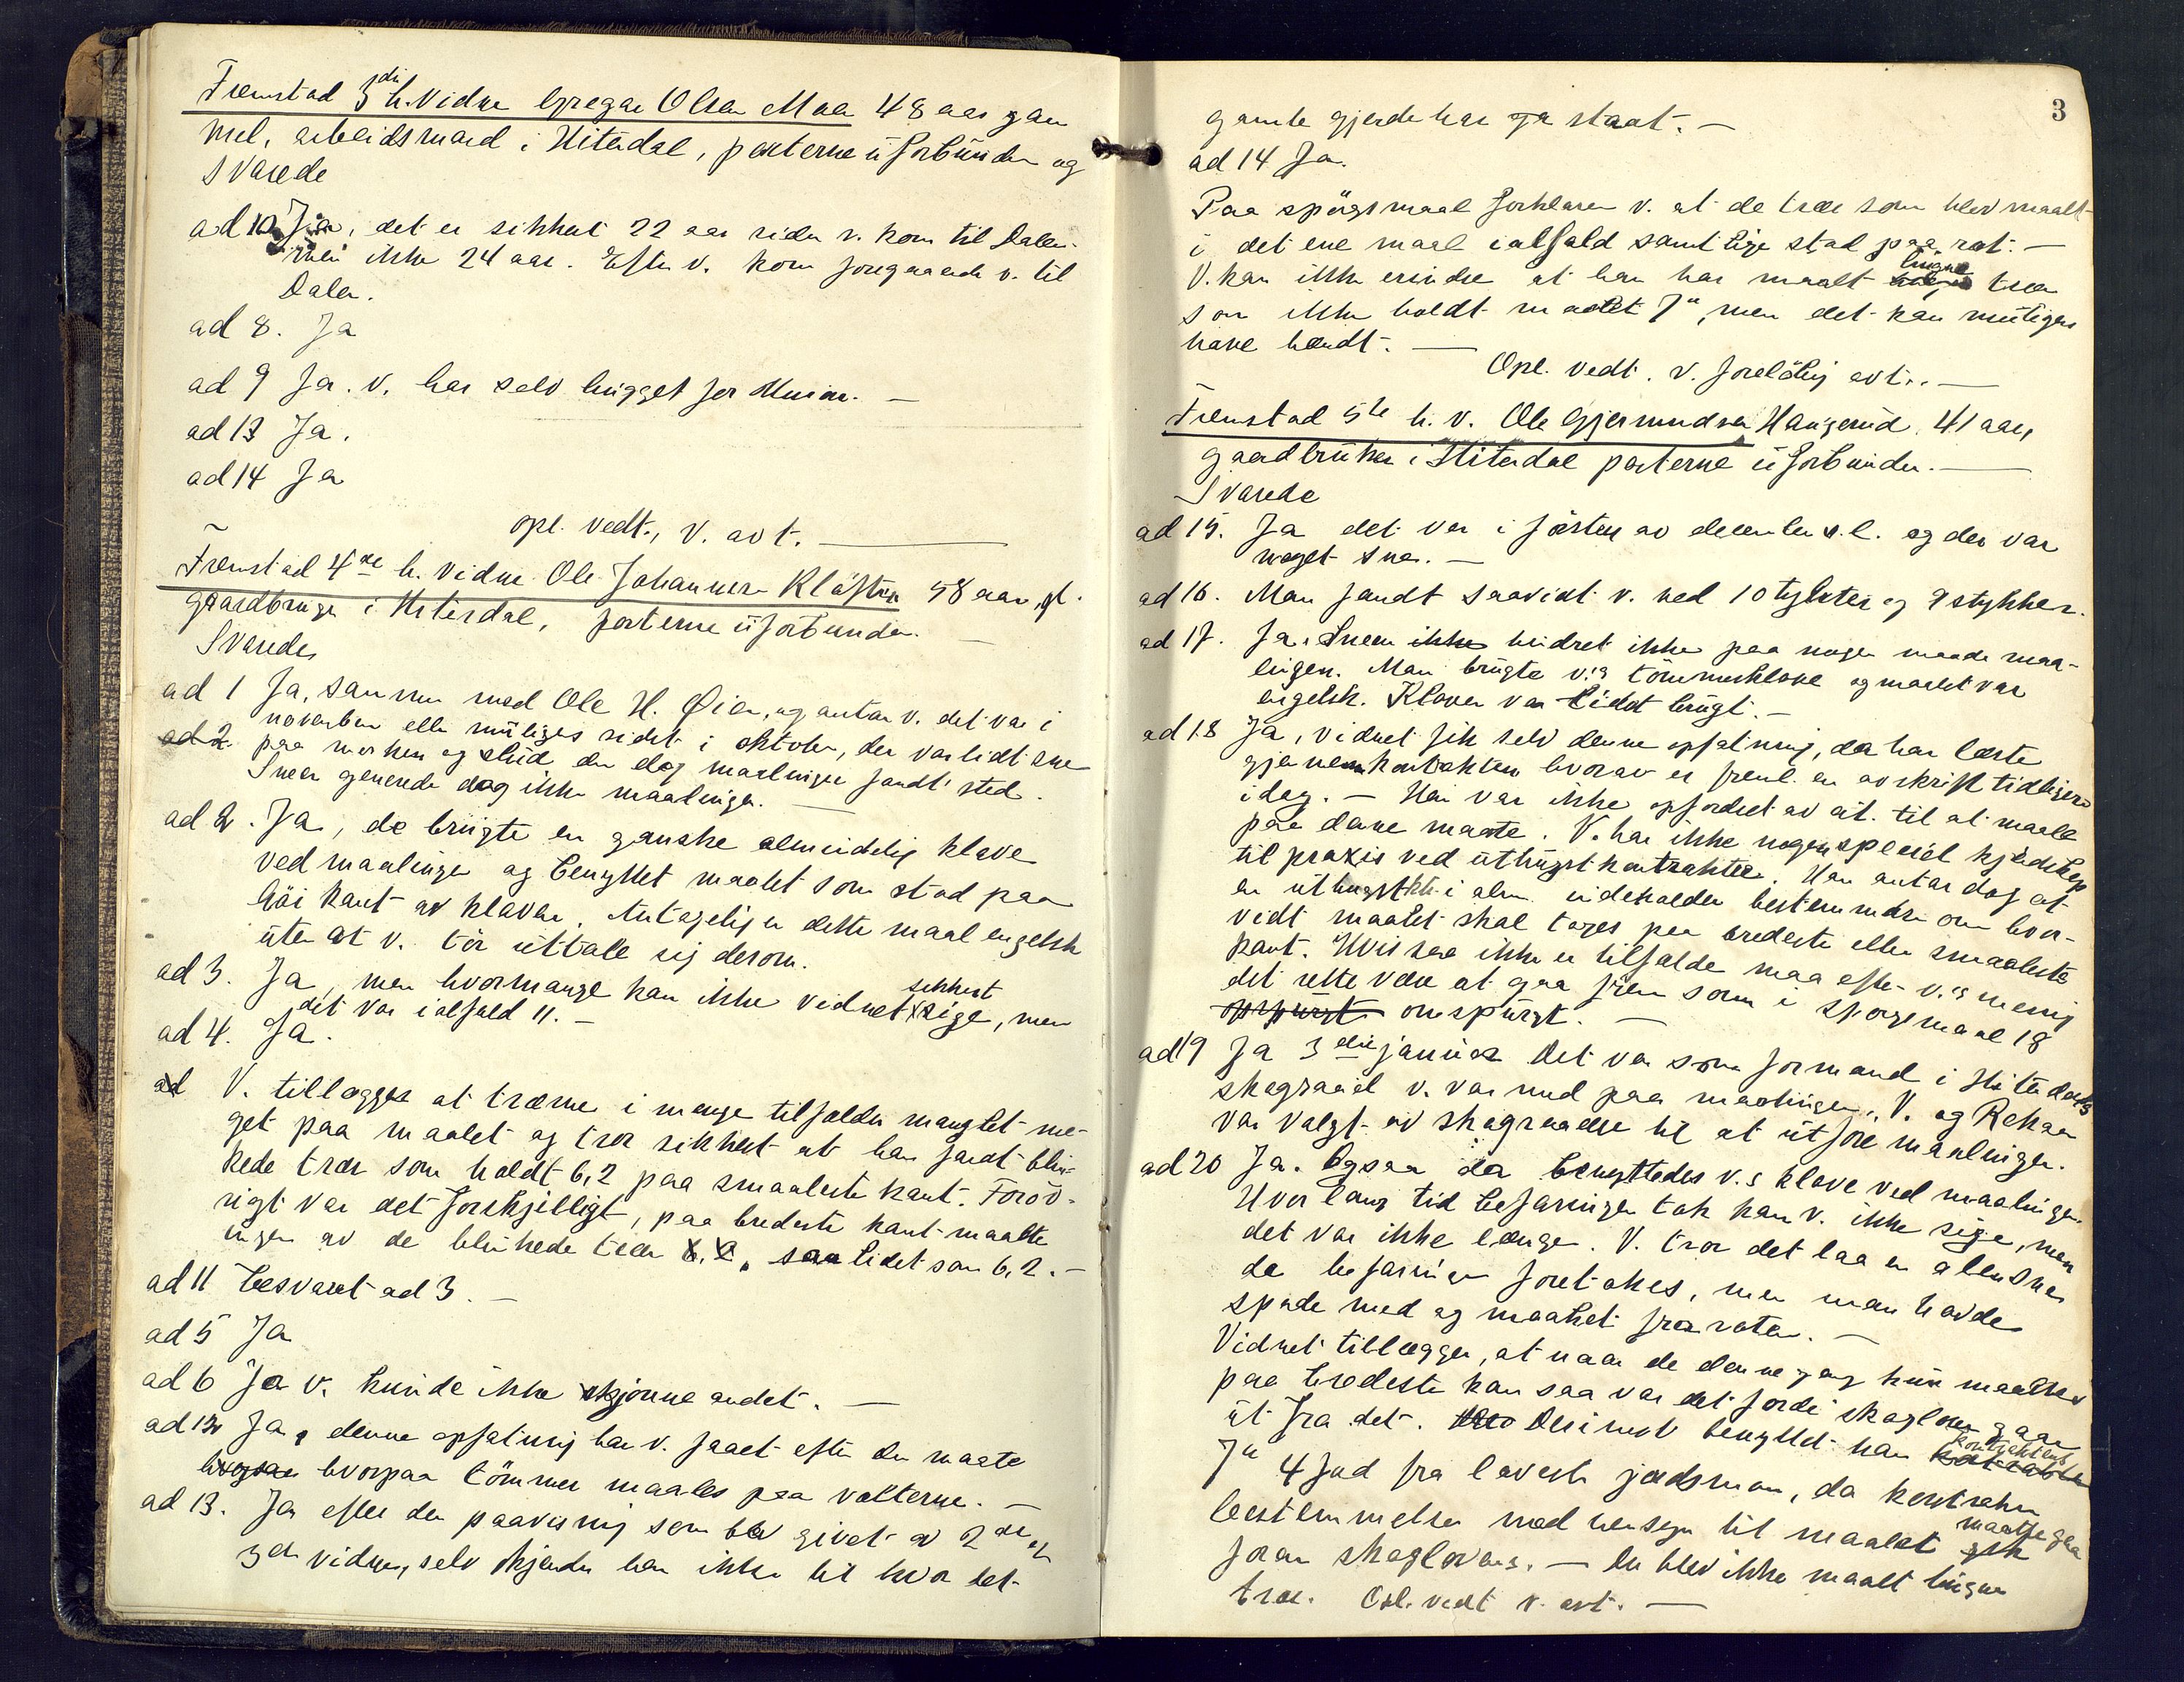 Fremstod 3die h. vidne Gregar Olsen Moen 48 aar gam
mel, arbeidsmand i Hiterdal, parterne uforbunden og
Svarede
ad 10 Ja, det er sikkert 22 aar siden v. kom til Dalen.
men ikke 24 aar. Efter v. kom foregaaende v. til
Dalen.
ad 8. Ja
ad 9 Ja. v. har selv hugget før Mürer. —
ad 13 Ja.
ad 14 Ja
opl. vedt., v. avt. —
Fremstod 4de h. vidne Ole Johannesen Kløften 58 aar gl.
gaardbruger i Hiterdal, parterne uforbunden. —
Svarede,
ad 1 Ja, sammen med Ole H. Øien, og antar v. det var i
november eller muligens sidst i oktober, der var lidt sne
ad 2. paa marken og slud den dag maalingen fandt sted.
Sneen generede dog ikke maalingen. —
ad 2. Ja, de brugte en ganske almindelig klave
ved maalingen og benyttet maalet som stod paa
høi kant av klaven. Antagelig er dette maal engelsk
uten at v. tør uttale sig derom.
ad 3. Ja, men hvormange kan ikke vidnet sikkert sige, men
det var ialfald 11. —
ad 4. Ja.
ad V. tillægger at trærne i mange tilfælder manglet me-
get paa maalet og tror sikkert at han fandt blin-
kede trær som holdt 6,2 paa smaleste kant. Forøv-
rigt var det forskjelligt, paa bredeste kant maalte
ingen av de blinkede trær saa lidet som 6,2. —
ad 11 besvaret ad 3. —
ad 5 Ja
ad 6 Ja v. kunde ikke skjønne andet. —
ad 12 Ja, denne opfatning har v. faaet efter den maate
hvorpaa tømmer maales paa velterne. —
ad 13. Ja efter den paavisning som blev givet av 2de og
3die vidner, selv kjender han ikke til hvor det
3
gamle gjerde har gaa staat. —
ad 14 Ja.
Paa spørgsmaal forklarer v. at de trær som blev maalt
i det ene maal ialfald samtlige stod paa rot. —
V. kan ikke erindre at han har maalt liggne trær
som ikke holdt maalet 7", men det kan muligens
have hændt. —
Opl. vedt. v. foreløbig avt. —
Fremstod 5te h. v. Ole Gjermundsen Haugerud 41 aar,
gaardbruker i Hiterdal parterne uforbunden. —
Svarede
ad 15. Ja det var i første av december s.l. og der var
noget sne. —
ad 16. Man fandt saavidt v. ved 10 tylvter og 9 stykker.
ad 17. Ja. Sneen ikke hindret ikke paa nogen maade maa-
lingen. Man brugte v.s tømmerklave og maalet var
engelsk. Klaven var lidet brugt. —
ad 18 Ja, vidnet fik selv denne opfatning, da han læste
gjennem kontrakten hvorav er freml. en avskrift tidligere
idag. — Han var ikke opfordret av cit. til at maale
paa denne maate. V. har ikke nogen speciel kjendskap
til praxis ved uthugstkontrakter. Han antar dog at
en uthugstktr. i alm. indeholder bestemmelse om hvor-
vidt maalet skal tages paa bredeste eller smaleste
kant. Hvis saa ikke er tilfælde maa efter v.s mening
det rette være at gaa frem som i spørgsmaal 18
opspurgt omspurgt. —
ad 19 Ja 3die januar. Det var som formand i Hiterdals
skograad v. var med paa maalingen. V. og Rekaa
var valgt av skograadet til at utføre maalingen.
ad 20 Ja. Ogsaa da benyttedes v.s klave ved maalingen.
Hvor lang tid befaringen tok kan v. ikke sige, men
det var ikke længe. V. tror det laa en alen sne
da befaringen foretokes, men man havde
spade med og maalet fra roten. —
Vidnet tillægger, at naar de denne gang kun maaltes
paa bredeste kan saa var det fordi skogloven gaar
ut fra det. Derimot benyttet han kontraktens
7" 4 fod fra laveste jordsmon, da kontrakten
bestemmelse med hensyn til maalet maatte gaa
foran skoglovens. — Der blev ikke maalt liggne
trær. Opl. vedt v. avt. —